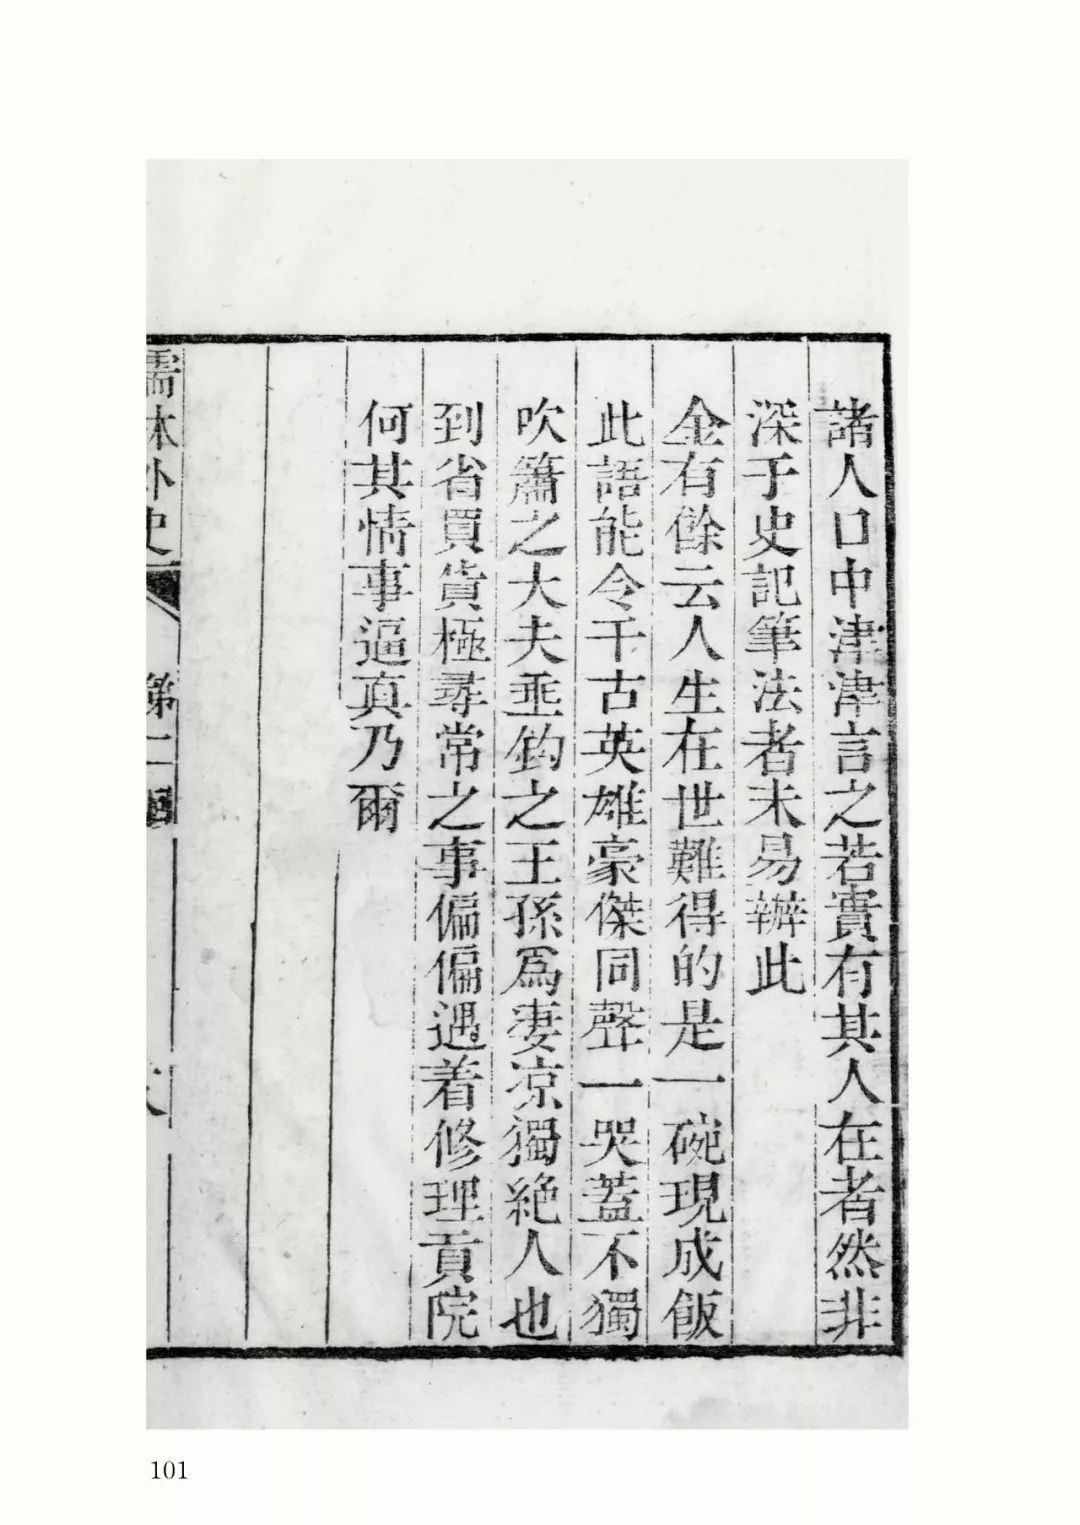 諸人口中津津言之若實有其人在者然非
深于史記筆法者未易辦此
金有餘云人生在世難得的是一碗現成飯
此語能令千古英雄豪傑同聲一哭蓋不獨
吹簫之大夫垂釣之王孫爲凄凉獨絶人也
到省買貨極尋常之事偏偏遇着修理貢院
何其情事逼真乃爾
儒林外史
第二回
101